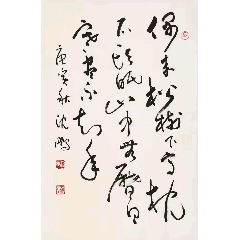 偶来松樹下高枕
石頭眠山中無曆日
寒盡不知年
庚寅秋沈鹏